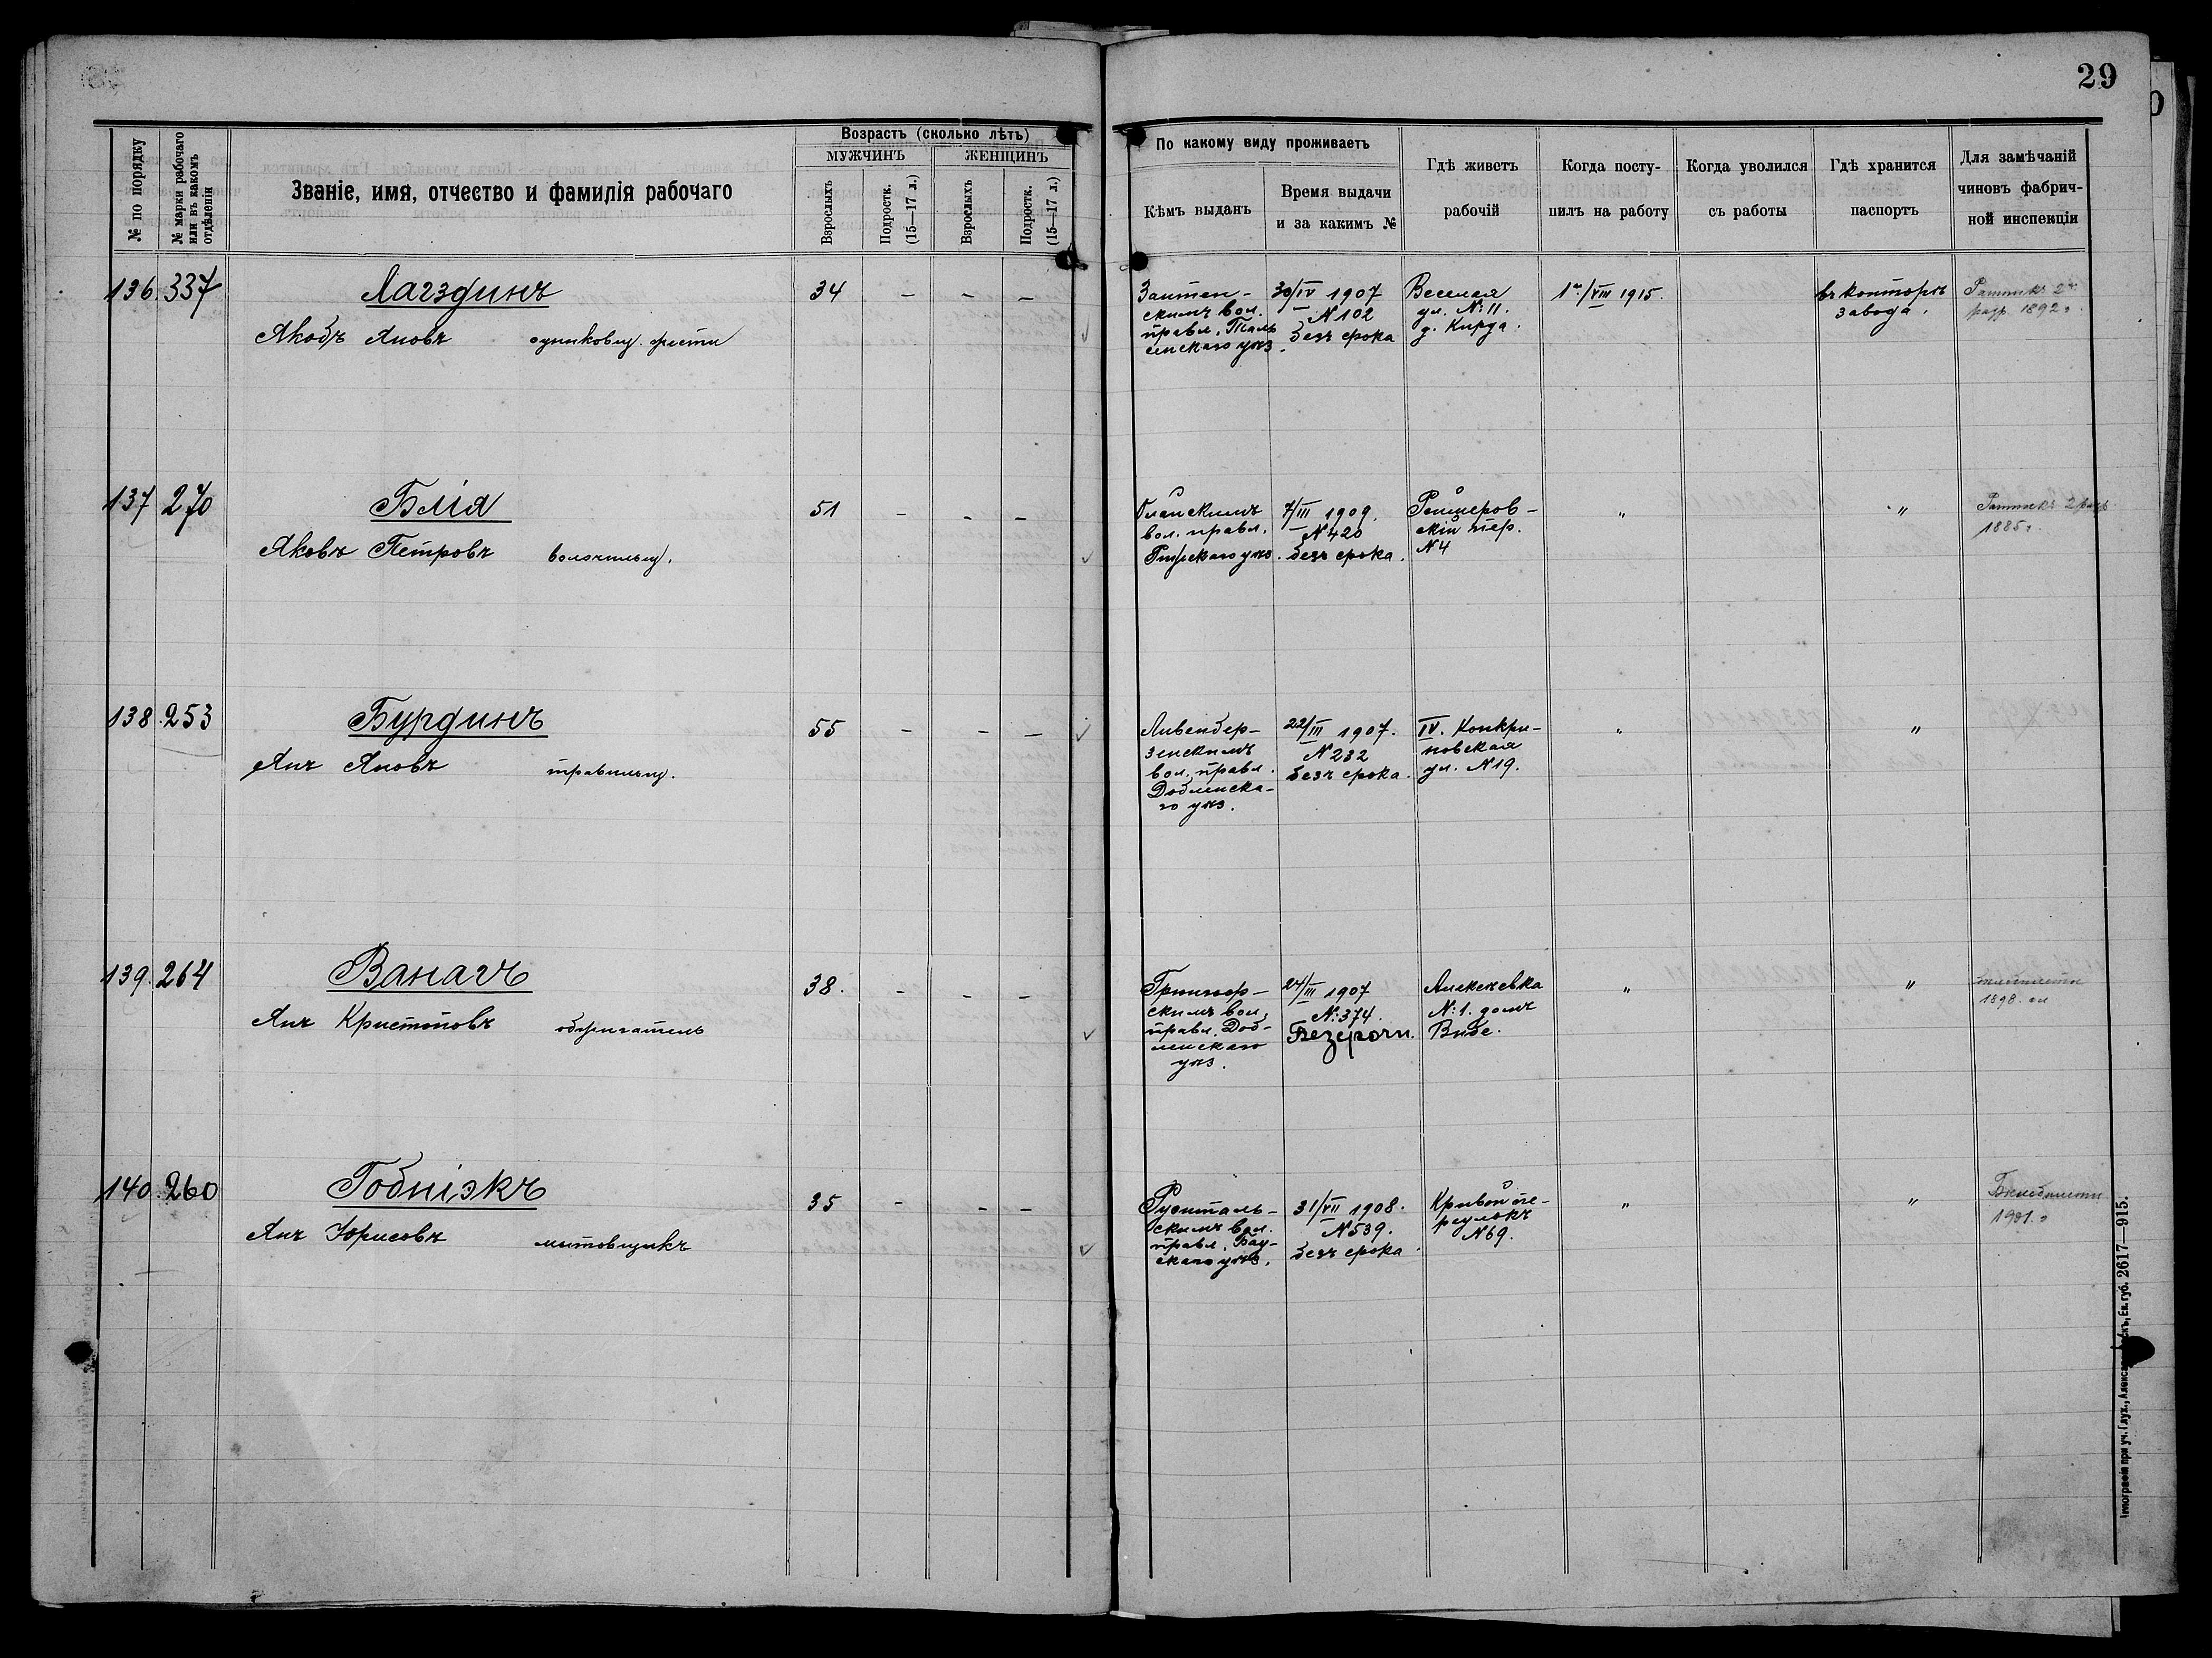 29
№ по порядку
№ марки рабочаго или въ какомъ отдѣленіи
Званіе, имя, отчество и фамилія рабочаго
Возрастъ (сколько лѣтъ)
МУЖЧИНЪ
ЖЕНЩИНЪ
Взрослыхъ
Подростк. (15—17 л.)
Взрослыхъ
Подростк. (15—17 л.)
По какому виду проживаетъ
Кѣмъ выданъ
Время выдачи
и за какимъ №
Гдѣ живетъ
рабочій
Когда посту-
пилъ на работу
Когда уволился
съ работы
Гдѣ хранится
паспортъ
Для замѣчаній
чиновъ фабрич-
ной инспекціи
136. 337 Лагздинъ 34 – – –
Якобъ Яновъ
Зантен-
скимъ вол.
правл. Таль
сенскаго уѣз.
30/IV 1907
№ 102
безъ срока
Веселая
ул. № 11.
д. Кирда.
1го/VIII 1915.
въ конторѣ
завода.
Ратникъ 2го
разр. 1892 г.
137 270 Блія 51 – – –
Яковъ Петровъ волочильщ.
Олайскимъ
вол. правл.
Рижскаго уѣз.
7/III 1909.
№ 420
безъ срока.
Реймеров-
скій пер.
№ 4
" "
Ратникъ 2 разр
1885 г.
138. 253 Бурдинъ 55 – – –
Янъ Яновъ правильщ.
Ливенбер-
зенскимъ
вол. правл.
Добленска-
го уѣз.
22/III 1907.
№ 232
безъ срока.
IV. Конкри-
новская
ул. № 19.
" "
139. 264 Ванагъ 38. – – –
Янъ Кристоповъ обжигатель
скимъ вол.
правл. Доб-
ленскаго
уѣз.
24/III 1907
№: 374.
Безсрочн.
Алексѣевка
№: 1. домъ
" "
1898.
140. 260 Гобніэкъ 35 – – –
Янъ Юрисовъ
Руенталь-
скимъ вол.
правл. Бау-
скаго уѣз.
31/VII 1908.
№ 539.
безъ срока.
Кривой пе-
реулокъ
№ 69.
" "
1901. г
Типографія при уч. Глух., Александровскъ, Ек. губ. 2617—915.